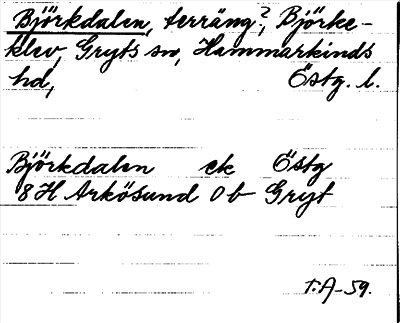 Björkdalen, terräng?, Björke-
klev, Gryts sn, Hammarkinds
hd, Östg. l.
Björkdalen ek Östg
8H Arkösund 0b Gryt
T.A-59.